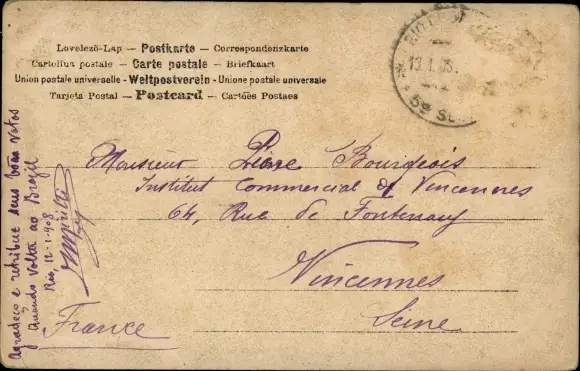 Levelező-Lap — Postkarte — Correspondenzkarte
Cartolina postale — Carte postale — Briefkaart
Union postale universelle - Weltpostverein - Unione postale universale
Tarjeta Postal — Postcard — Cartões Postaes
RIO
13.1.
5ª S
Monsieur Pierre Bourgeois
Institut Commercial of Vincennes
64, Rue de Fontenay
Vincennes
Seine
France
Agradeço e retribue seus bons votos
Quando volta ao Brazil
Rio, 12-1-908